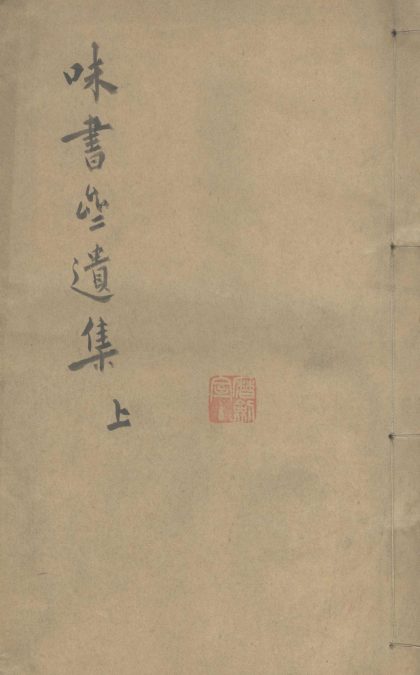 味書遺集
上